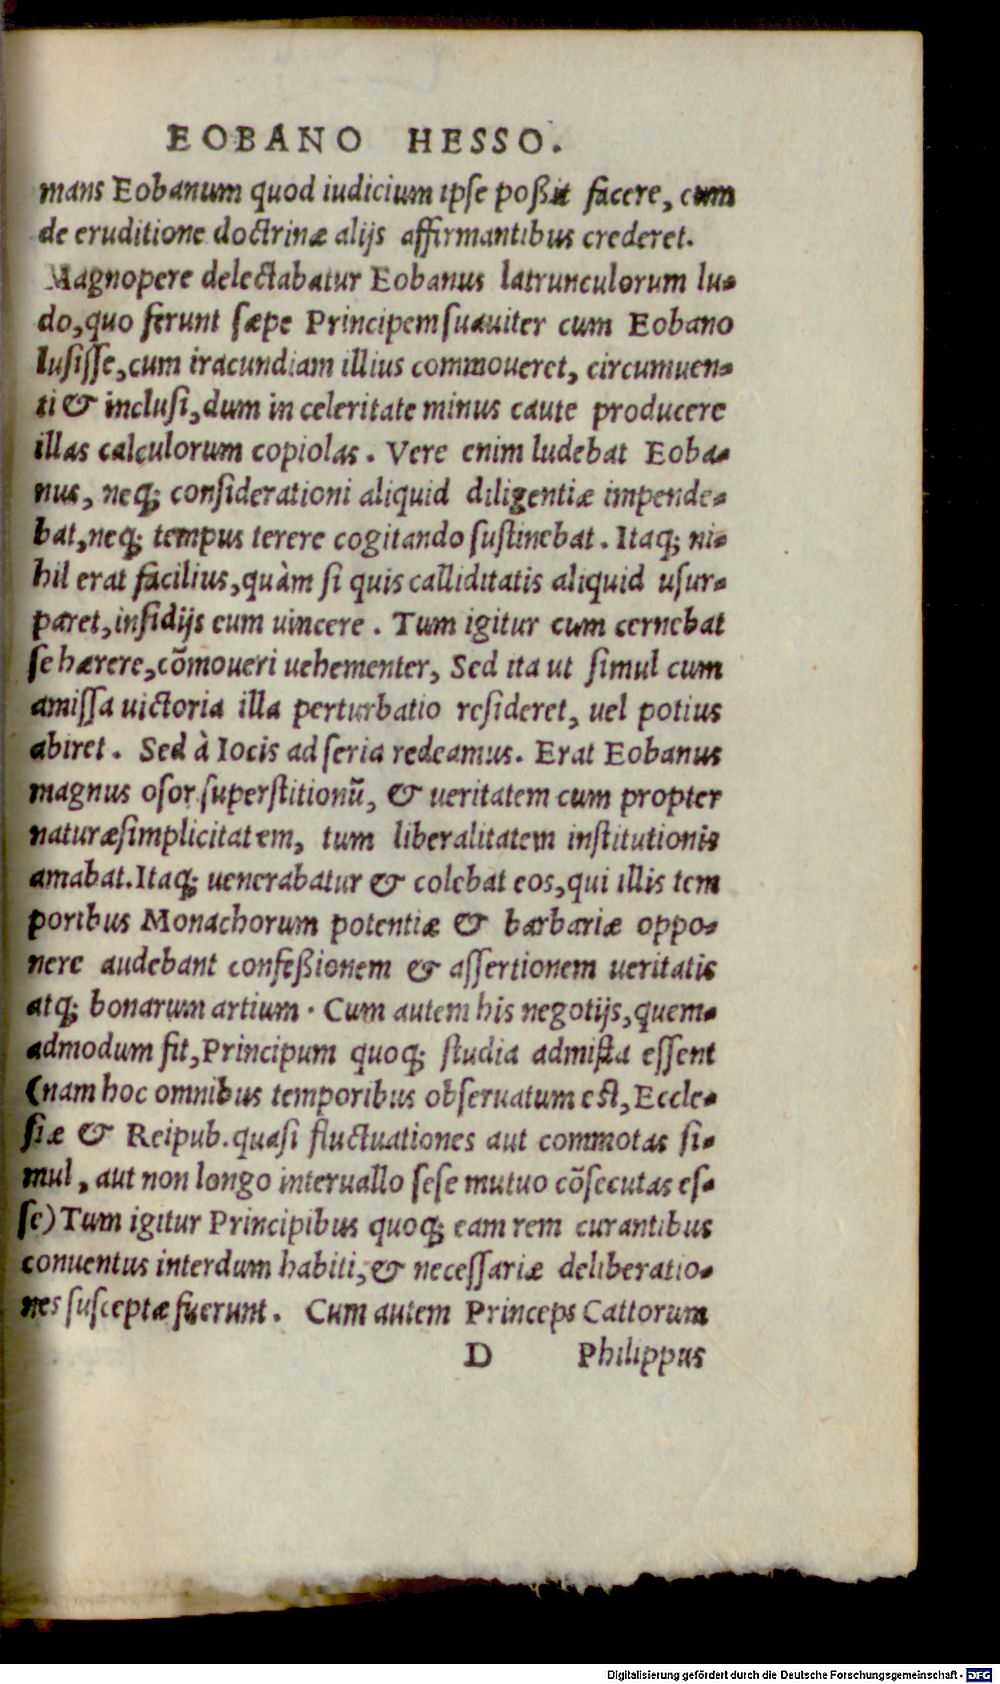 EOBANO HESSO.
mans Eobanum quod iudicium ipſe poßit facere, cum
de eruditione doctrinæ alijs affirmantibus crederet.
Magnopere delectabatur Eobanus latrunculorum lu-
do, quo ferunt ſæpe Principem ſuauiter cum Eobano
luſiſſe, cum iracundiam illius commoueret, circumuen-
ti & incluſi, dum in celeritate minus caute producere
illas calculorum copiolas. Vere enim ludebat Eoba-
nus, neq; conſiderationi aliquid diligentiæ impende-
bat, neq; tempus terere cogitando ſuſtinebat. Itaq; ni-
hil erat facilius, quàm ſi quis calliditatis aliquid uſur-
paret, inſidijs eum uincere. Tum igitur cum cernebat
ſe hærere, cõmoueri uehementer, Sed ita ut ſimul cum
amiſſa uictoria illa perturbatio reſideret, uel potius
abiret. Sed à Iocis ad ſeria redeamus. Erat Eobanus
magnus oſor ſuperſtitionũ, & ueritatem cum propter
naturæ ſimplicitatem, tum liberalitatem inſtitutionis
amabat. Itaq; uenerabatur & colebat eos, qui illis tem
poribus Monachorum potentiæ & barbariæ oppo-
nere audebant confeßionem & aſſertionem ueritatis
atq; bonarum artium. Cum autem his negotijs, quem-
admodum fit, Principum quoq; ſtudia admiſta eſſent
(nam hoc omnibus temporibus obſeruatum eſt, Eccle-
ſiæ & Reipub. quaſi fluctuationes aut commotas ſi-
mul, aut non longo interuallo ſeſe mutuo cõſecutas eſ-
ſe) Tum igitur Principibus quoq; eam rem curantibus
conuentus interdum habiti, & neceſſariæ deliberatio-
nes ſuſceptæ fuerunt. Cum autem Princeps Cattorum
D Philippus
Digitalisierung gefördert durch die Deutsche Forschungsgemeinschaft - DFG